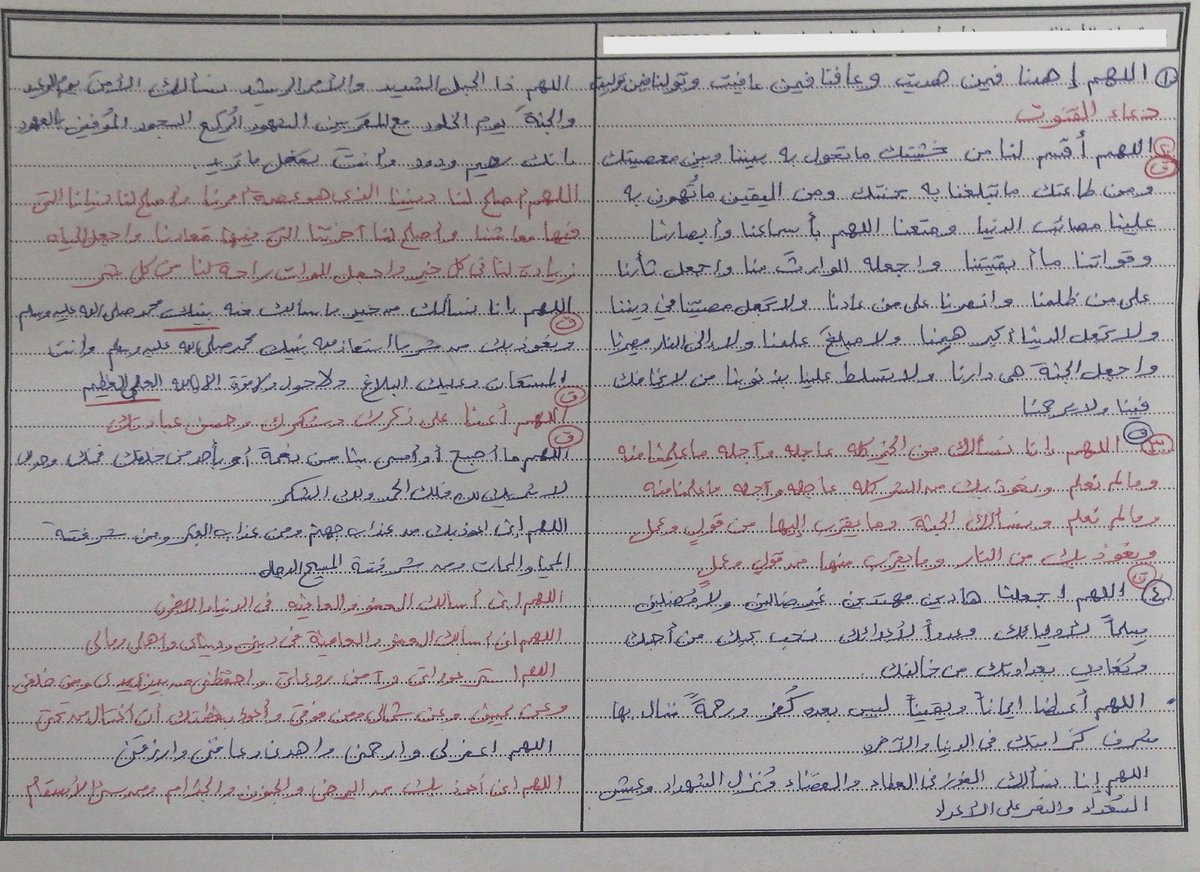 ① اللهم إهدنا فيمن هديت وعافنا فيمن عافيت وتولنا فيمن توليت
دعاء القنوت
② اللهم أقسم لنا من خشيتك ما تحول به بيننا وبين معصيتك
ومن طاعتك ما تبلغنا به جنتك ومن اليقين ما تُهون به
علينا مصائب الدنيا ومتعنا اللهم بأسماعنا وأبصارنا
وقواتنا ما أبقيتنا واجعله الوارث منا واجعل ثأرنا
على من ظلمنا وانصرنا على من عادنا ولا تجعل مصيبتنا في ديننا
ولا تجعل الدنيا أكبر همِنا ولا مبلغ علمنا ولا إلى النار مصيرنا
واجعل الجنة هى دارنا ولا تسلط علينا بذنوبنا من لا يخافك
فينا ولا يرحمنا
③ اللهم إنا نسألك من الخير كله عاجله وآجله ما علمنا منه
ومالم نعلم ونعوذ بك من الشر كله عاجله وآجله ما علمنا منه
ومالم نعلم ونسألك الجنة وما يقرب إليها من قولٍ وعمل
ونعوذ بك من النار وما يقرب منها من قول وعملٍ
④ اللهم اجعلنا هادين مهتدين غير ضالين ولا مضلين
سِلماً لأوليائك وعدواً لأعدائك نحب بحبك من أحبك
ونعادي بعداوتك من خالفك
• اللهم أعطنا إيماناً ويقيناً ليس بعده كُفر ورحمةً ننال بها
شرف كرامتك في الدنيا والآخره
اللهم إنا نسألك الفوز في العطاء والقضاء ونُزل الشهداء وعيش
السُعداء والنصر على الأعداء
اللهم ذا الحبل الشديد والأمر الرشيد نسألك الأمن يوم الوعيد
والجنةَ يوم الخلود مع المقربين الشهود الرُكع السجود المُوفين بالعهود
إنك رحيم ودود وأنت تفعل ما تريد
اللهم اصلح لنا ديننا الذى هو عصمة أمرنا واصلح لنا دنيانا التى
فيها معاشنا وأصلح لنا آخرتنا التى فيها معادنا واجعل الحياه
زيادة لنا فى كل خير واجعل الموت راحة لنا من كل شر
اللهم إنا نسألك من خير ما سألك منه نبيك محمد صلى الله عليه وسلم
ونعوذ بك من شر ما استعاذ منه نبيك محمد صلى الله عليه وسلم وأنت
المستعان وعليك البلاغ ولا حول ولا قوة إلا بالله العلى العظيم
اللهم أعنا على ذكرك وشكرك وحسن عبادتك
اللهم ما أصبح أو أمسى بنا من نعمة أو بأحد من خلقك فمنك وحدك
لا شريك لك فلك الحمد ولك الشكر
اللهم إنى أعوذ بك من عذاب جهنم ومن عذاب القبر ومن شر فتنة
المحيا والممات ومن شر فتنة المسيح الدجال
اللهم إنى أسالك العفو والعافيه فى الدنيا والآخره
اللهم إنى أسالك العفو والعافية فى دينى ودنياى وأهلى ومالى
اللهم استر عوراتى وآمن روعاتى واحفظنى من بين يدى ومن خلفى
وعن يمينى وعن شمالى ومن فوقى وأعوذ بعظمتك أن اغتال من تحتى
اللهم اغفر لى وارحمنى واهدنى وعافنى وارزقنى
اللهم إنى أعوذ بك من البرص والجنون والجذام ومن سئ الأسقام